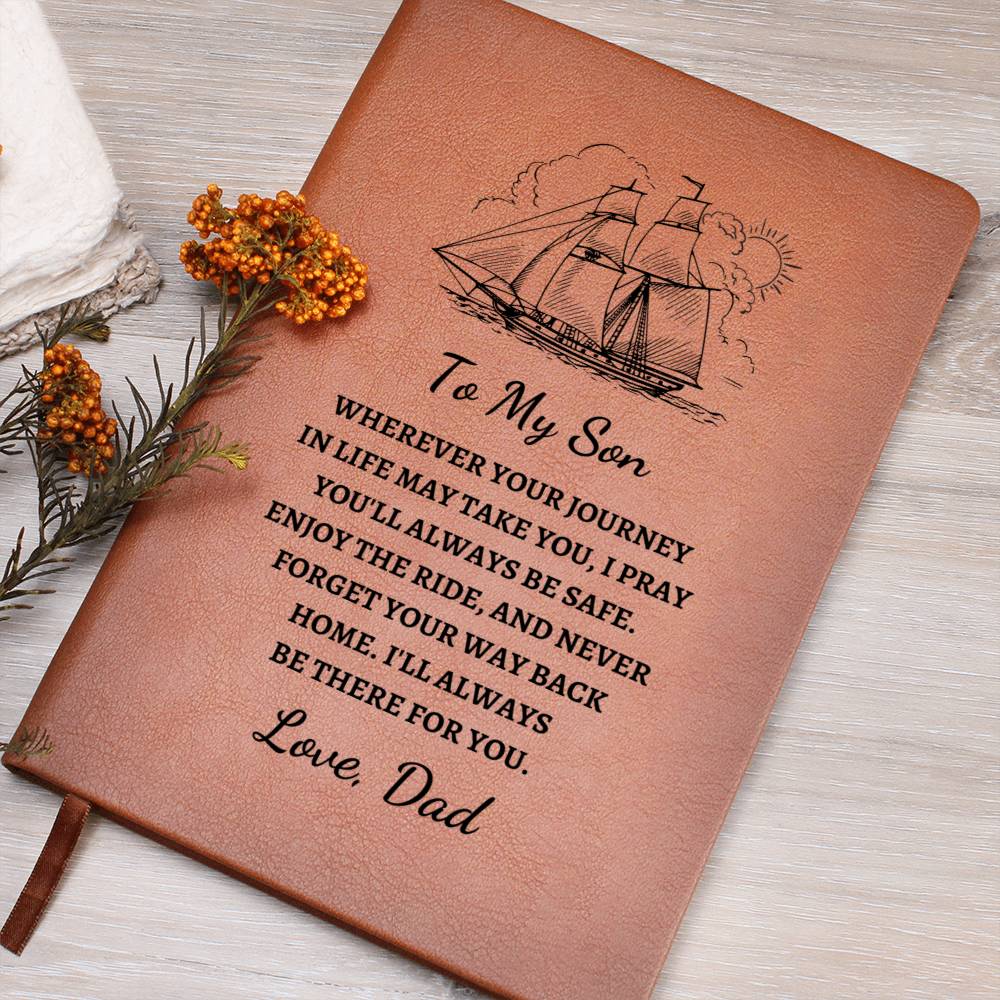 To My Son
WHEREVER YOUR JOURNEY
IN LIFE MAY TAKE YOU, I PRAY
YOU'LL ALWAYS BE SAFE.
ENJOY THE RIDE, AND NEVER
FORGET YOUR WAY BACK
HOME. I'LL ALWAYS
BE THERE FOR YOU.
Love, Dad